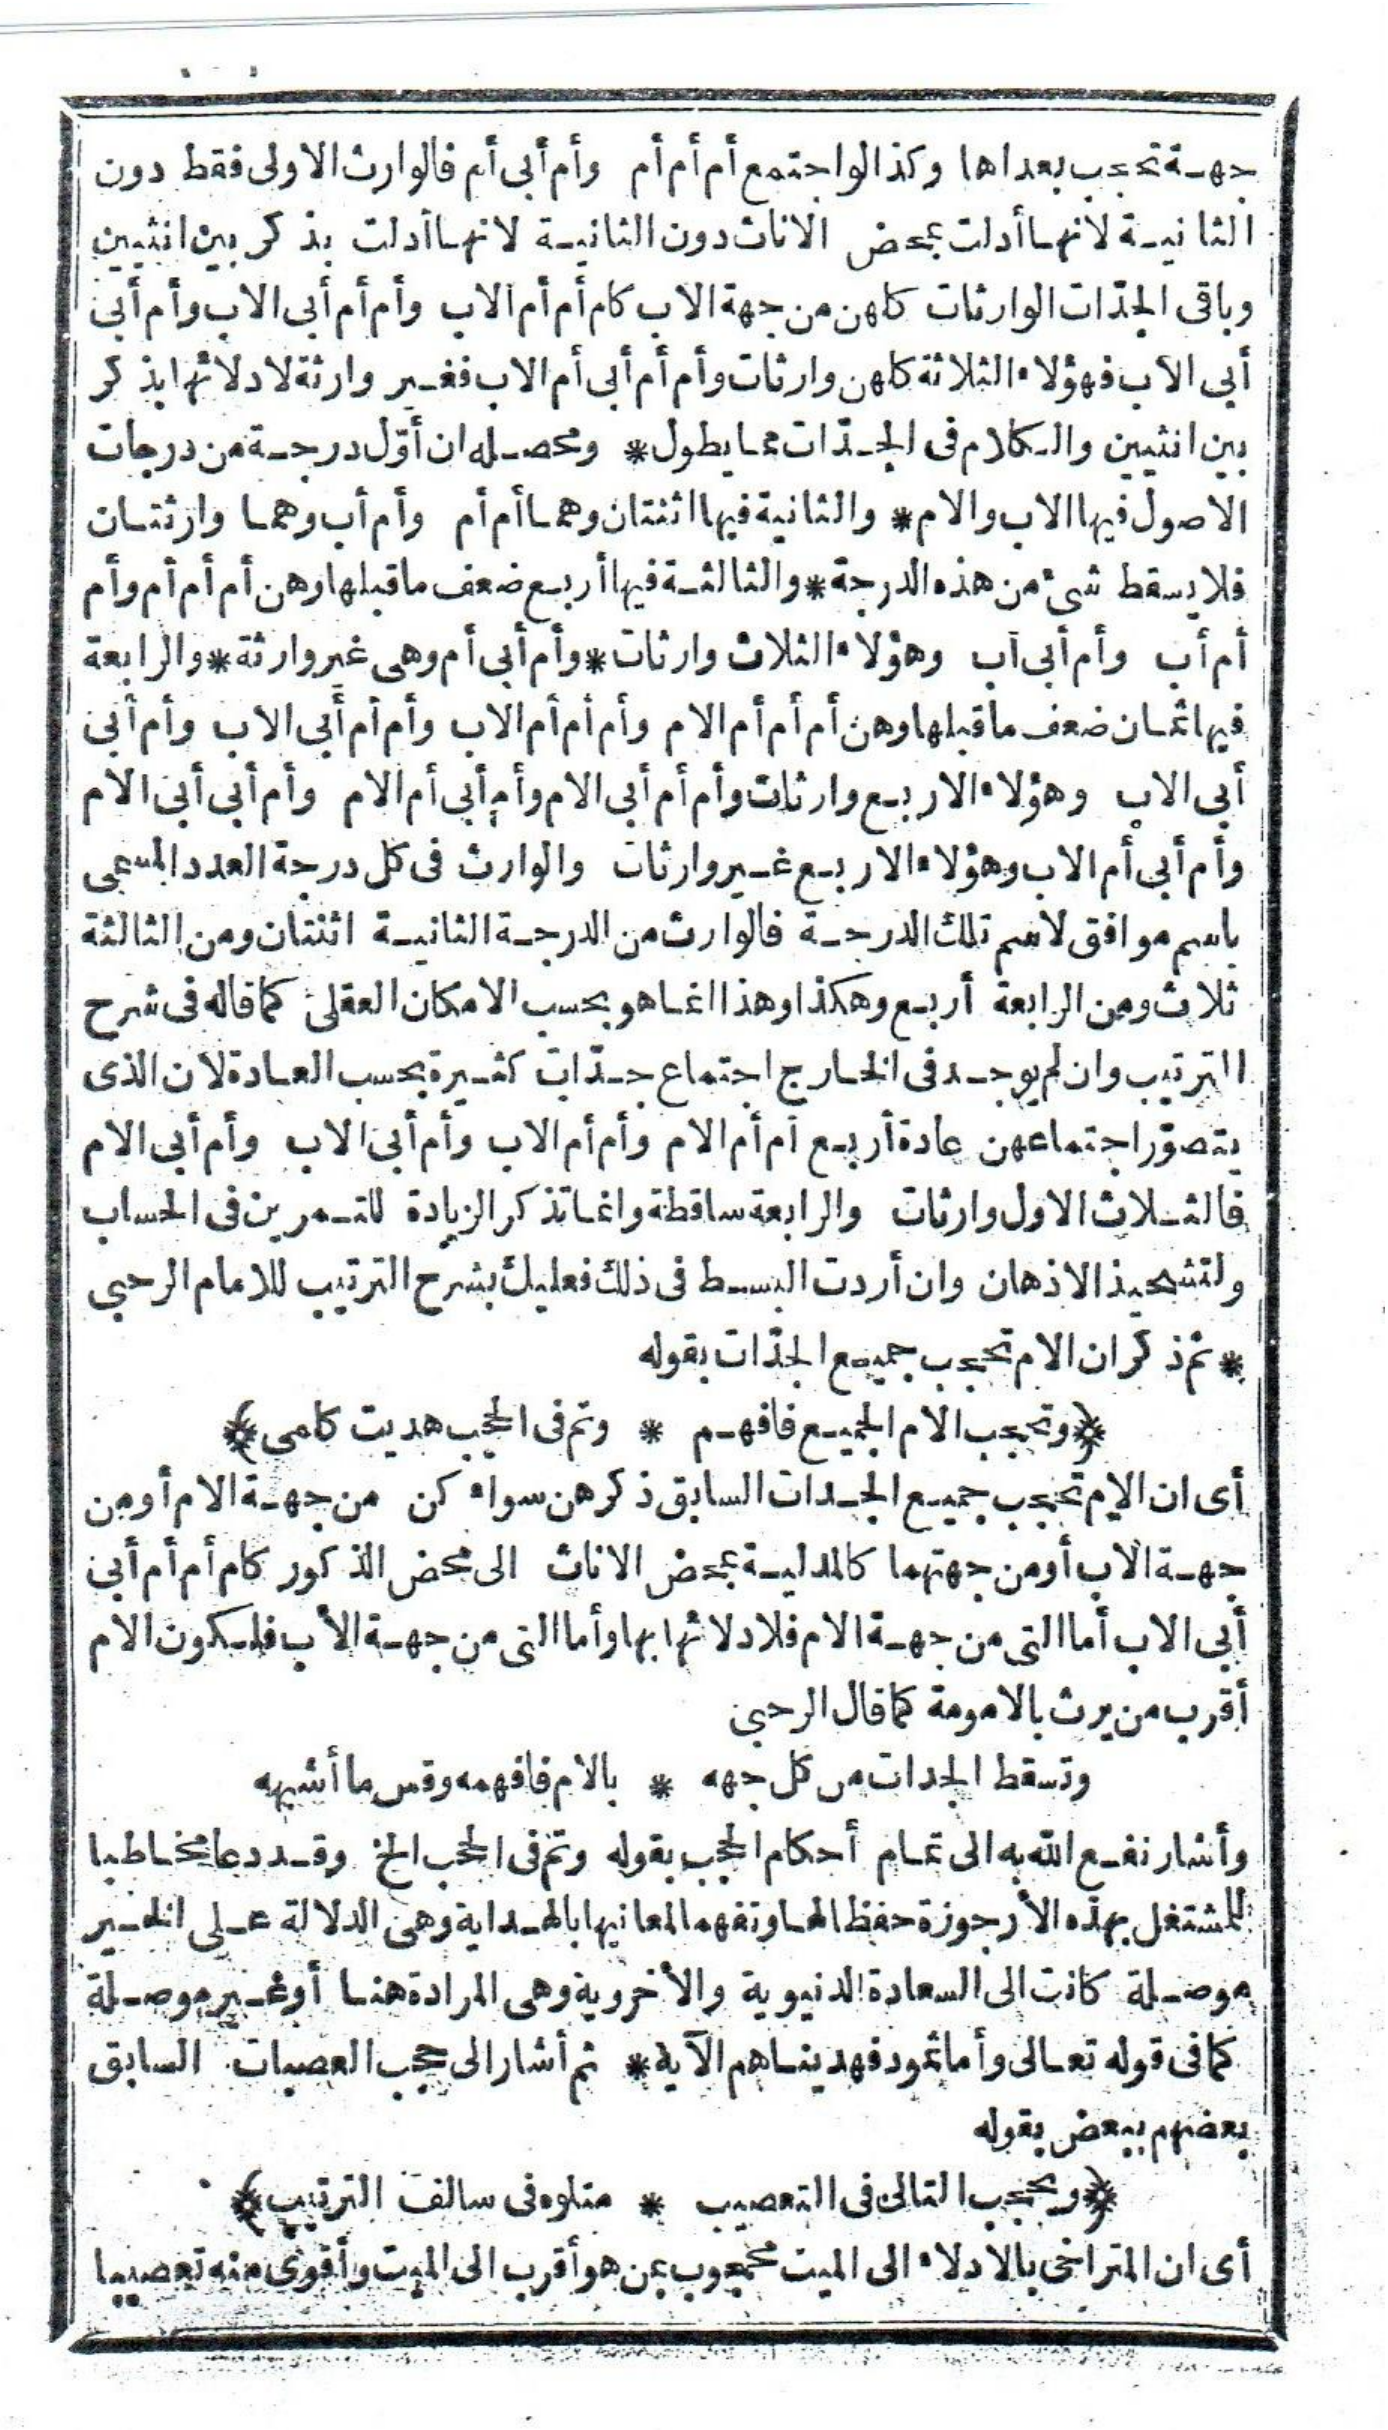 جهة تحجب بعداها وكذا لو اجتمع أم أم أم وأم أبى أم فالوارث الاولى فقط دون
الثانية لانها أدلت بمحض الاناث دون الثانية لانها أدلت بذكر بين انثيين
وباقى الجدّات الوارثات كلهن من جهة الاب كام أم أم الاب وأم أم أبى الاب وأم أبى
أبى الاب فهؤلاء الثلاثة كلهن وارثات وأم أم أبى أم الاب فغير وارثة لادلائها بذكر
بين انثيين والكلام فى الجدّات مما يطول * ومحصله ان أوّل درجة من درجات
الاصول فيها الاب والام * والثانية فيها اثنتان وهما أم أم وأم أب وهما وارثتان
فلا يسقط شئ من هذه الدرجة * والثالثة فيها أربع ضعف ما قبلها وهن أم أم أم وأم
أم أب وأم أبى أب وهؤلاء الثلاث وارثات * وأم أبى أم وهى غير وارثة * والرابعة
فيها ثمان ضعف ما قبلها وهن أم أم أم الام وأم أم أم الاب وأم أم أبى الاب وأم أبى
أبى الاب وهؤلاء الاربع وارثات وأم أم أبى الام وأم أبى أم الام وأم أبى أبى الام
وأم أبى أم الاب وهؤلاء الاربع غير وارثات والوارث فى كل درجة العدد المسمى
باسم موافق لاسم تلك الدرجة فالوارث من الدرجة الثانية اثنتان ومن الثالثة
ثلاث ومن الرابعة أربع وهكذا وهذا انما هو بحسب الامكان العقلى كما قاله فى شرح
الترتيب وان لم يوجد فى الخارج اجتماع جدّات كثيرة بحسب العادة لان الذى
يتصوّر اجتماعهن عادة أربع أم أم الام وأم أم الاب وأم أبى الاب وأم أبى الام
فالثلاث الاول وارثات والرابعة ساقطة وانما تذكر الزيادة للتمرين فى الحساب
ولتشحيذ الاذهان وان أردت البسط فى ذلك فعليك بشرح الترتيب للامام الرحبى
* ثم ذكر ان الام تحجب جميع الجدّات بقوله
﴿وتحجب الام الجميع فافهم * وتم فى الحجب هديت كلمى﴾
أى ان الام تحجب جميع الجدات السابق ذكرهن سواء كن من جهة الام أو من
جهة الاب أو من جهتهما كالمدلية بمحض الاناث الى محض الذكور كام أم أم أبى
أبى الاب أما التى من جهة الام فلادلائها بها وأما التى من جهة الأب فلكون الام
أقرب من يرث بالامومة كما قال الرحبى
وتسقط الجدات من كل جهه * بالام فافهمه وقس ما أشبهه
وأشار نفع الله به الى تمام أحكام الحجب بقوله وتم فى الحجب الخ وقد دعا مخاطبا
للمشتغل بهذه الأرجوزة حفظا لها وتفهما لمعانيها بالهداية وهى الدلالة على الخير
موصلة كانت الى السعادة الدنيوية والأخروية وهى المرادة هنا أو غير موصلة
كما فى قوله تعالى وأما ثمود فهديناهم الآية * ثم أشار الى حجب العصبات السابق
بعضهم ببعض بقوله
﴿ويحجب التالى فى التعصيب * متلوه فى سالف الترتيب﴾
أى ان المتراخى بالادلاء الى الميت محجوب بمن هو أقرب الى الميت وأقوى منه تعصيبا